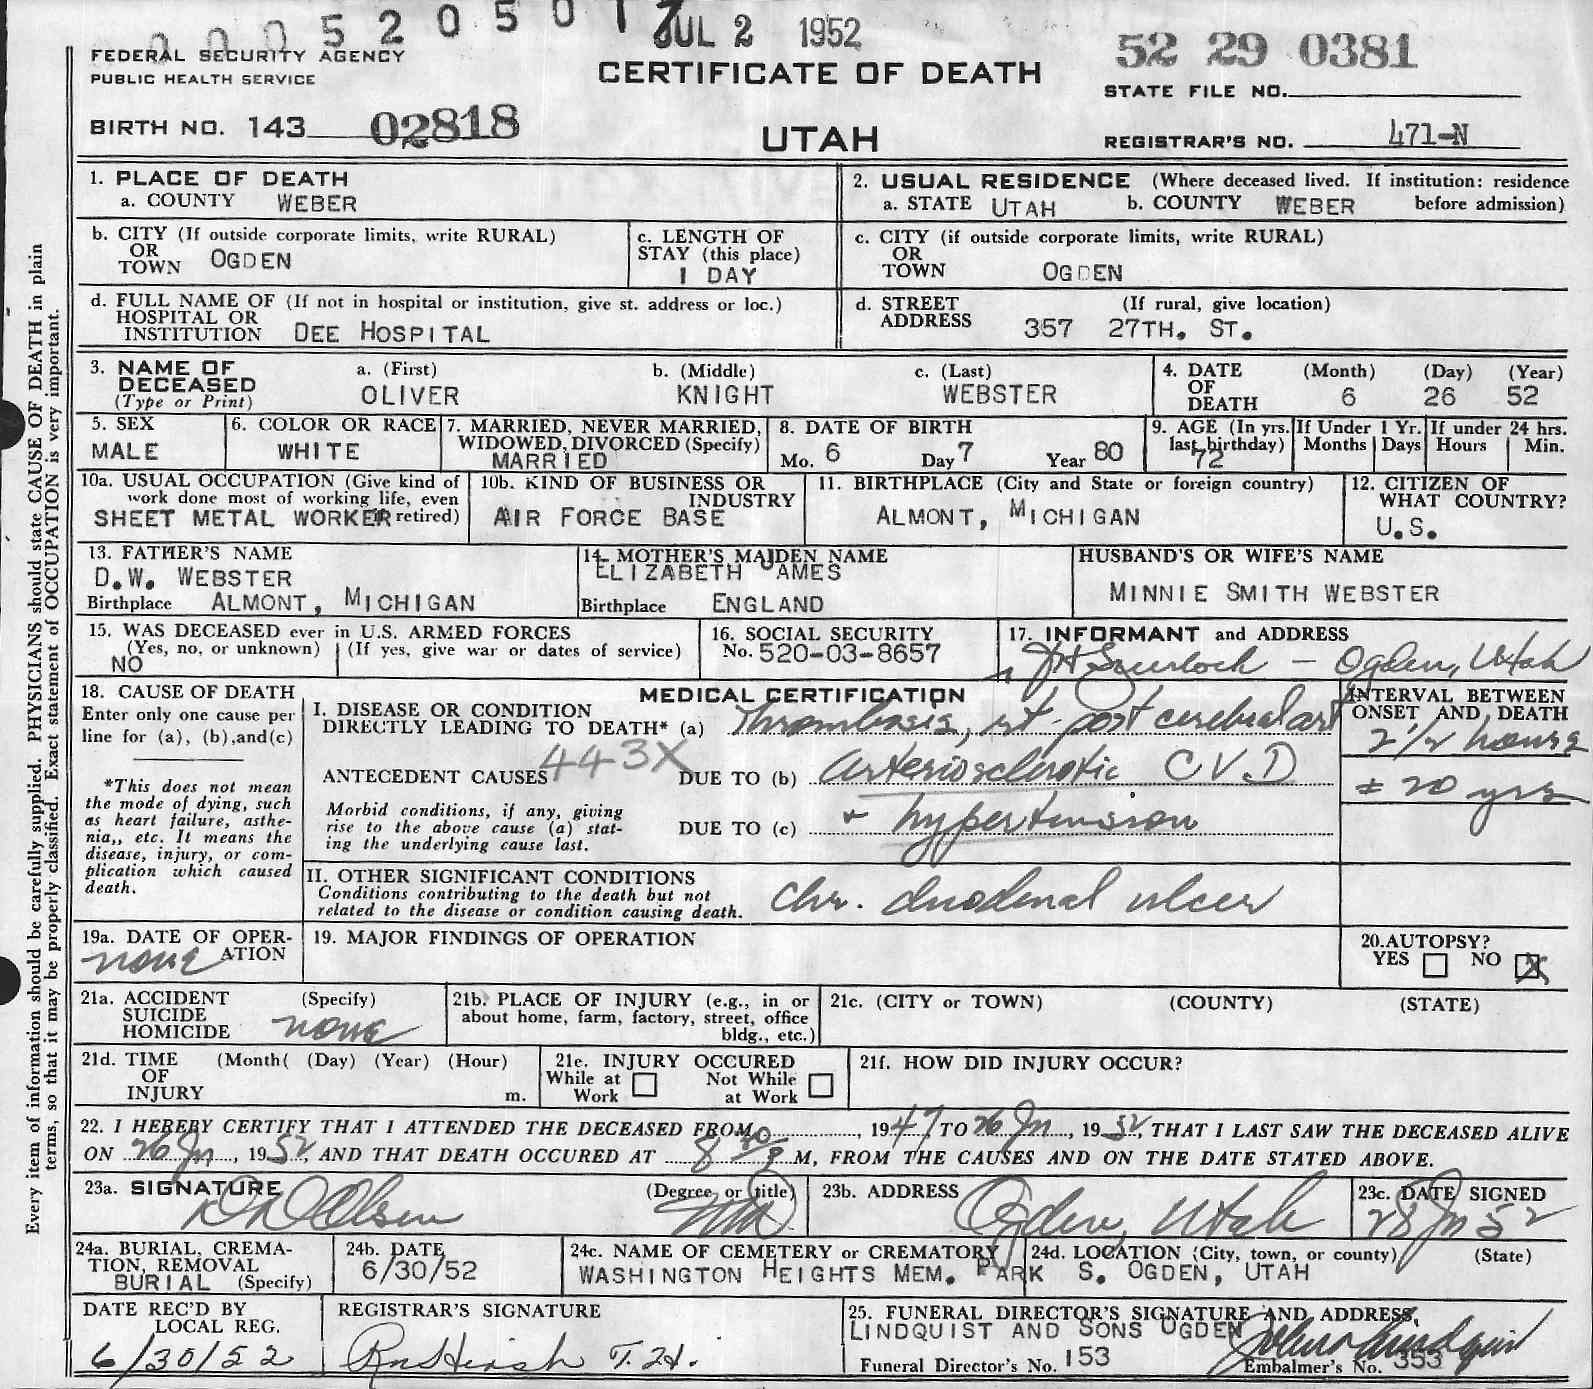 000520501 7 JUL 2 1952
FEDERAL SECURITY AGENCY
PUBLIC HEALTH SERVICE
CERTIFICATE OF DEATH
52 29 0381
STATE FILE NO.
BIRTH NO. 143 02818
UTAH
REGISTRAR'S NO. 471-N
1. PLACE OF DEATH
a. COUNTY WEBER
2. USUAL RESIDENCE (Where deceased lived. If institution: residence
a. STATE UTAH b. COUNTY WEBER before admission)
b. CITY (If outside corporate limits, write RURAL)
OR
TOWN OGDEN
c. LENGTH OF
STAY (this place)
1 DAY
c. CITY (if outside corporate limits, write RURAL)
OR
TOWN OGDEN
d. FULL NAME OF (If not in hospital or institution, give st. address or loc.)
HOSPITAL OR
INSTITUTION DEE HOSPITAL
d. STREET (If rural, give location)
ADDRESS 357 27TH. ST.
3. NAME OF
DECEASED
(Type or Print)
a. (First)
OLIVER
b. (Middle)
KNIGHT
c. (Last)
WEBSTER
4. DATE (Month) (Day) (Year)
OF
DEATH 6 26 52
5. SEX
MALE
6. COLOR OR RACE
WHITE
7. MARRIED, NEVER MARRIED,
WIDOWED, DIVORCED (Specify)
MARRIED
8. DATE OF BIRTH
Mo. 6 Day 7 Year 80
9. AGE (In yrs.
last birthday)
72
If Under 1 Yr.
Months Days
If under 24 hrs.
Hours Min.
10a. USUAL OCCUPATION (Give kind of
work done most of working life, even
SHEET METAL WORKER retired)
10b. KIND OF BUSINESS OR
INDUSTRY
AIR FORCE BASE
11. BIRTHPLACE (City and State or foreign country)
ALMONT, MICHIGAN
12. CITIZEN OF
WHAT COUNTRY?
U.S.
13. FATHER'S NAME
D.W. WEBSTER
Birthplace ALMONT, MICHIGAN
14. MOTHER'S MAIDEN NAME
ELIZABETH JAMES
Birthplace ENGLAND
HUSBAND'S OR WIFE'S NAME
MINNIE SMITH WEBSTER
15. WAS DECEASED ever in U.S. ARMED FORCES
(Yes, no, or unknown) (If yes, give war or dates of service)
NO
16. SOCIAL SECURITY
No. 520-03-8657
17. INFORMANT and ADDRESS
– Ogden, Utah
18. CAUSE OF DEATH
Enter only one cause per
line for (a), (b), and (c)
*This does not mean
the mode of dying, such
as heart failure, asthe-
nia,, etc. It means the
disease, injury, or com-
plication which caused
death.
MEDICAL CERTIFICATION
I. DISEASE OR CONDITION
DIRECTLY LEADING TO DEATH* (a) Thrombosis, rt. post cerebral art
443X
ANTECEDENT CAUSES DUE TO (b) arteriosclerotic C V.D
Morbid conditions, if any, giving
rise to the above cause (a) stat-
ing the underlying cause last.
DUE TO (c) + hypertension
II. OTHER SIGNIFICANT CONDITIONS
Conditions contributing to the death but not
related to the disease or condition causing death.
Chr. duodenal ulcer
INTERVAL BETWEEN
ONSET AND DEATH
2 1/2 hours
± 20 yrs
19a. DATE OF OPER-
ATION
none
19. MAJOR FINDINGS OF OPERATION
20. AUTOPSY?
YES NO X
21a. ACCIDENT (Specify)
SUICIDE
HOMICIDE none
21b. PLACE OF INJURY (e.g., in or
about home, farm, factory, street, office
bldg., etc.)
21c. (CITY or TOWN) (COUNTY) (STATE)
21d. TIME (Month( (Day) (Year) (Hour)
OF
INJURY m.
21e. INJURY OCCURED
While at Work
Not While at Work
21f. HOW DID INJURY OCCUR?
22. I HEREBY CERTIFY THAT I ATTENDED THE DECEASED FROM , 1947 TO 26 Jn, 1952, THAT I LAST SAW THE DECEASED ALIVE
ON 26 Jn, 1952, AND THAT DEATH OCCURED AT 8 30 P M, FROM THE CAUSES AND ON THE DATE STATED ABOVE.
23a. SIGNATURE (Degree or title)
Olsen MD
23b. ADDRESS
Ogden, Utah
23c. DATE SIGNED
28 Jn 52
24a. BURIAL, CREMA-
TION, REMOVAL
BURIAL (Specify)
24b. DATE
6/30/52
24c. NAME OF CEMETERY or CREMATORY
WASHINGTON HEIGHTS MEM. PARK
24d. LOCATION (City, town, or county) (State)
S. OGDEN, UTAH
DATE REC'D BY
LOCAL REG.
6/30/52
REGISTRAR'S SIGNATURE
25. FUNERAL DIRECTOR'S SIGNATURE AND ADDRESS,
LINDQUIST AND SONS OGDEN
Funeral Director's No. 153
Embalmer's No. 353
Every item of information should be carefully supplied. PHYSICIANS should state CAUSE OF DEATH in plain
terms, so that it may be properly classified. Exact statement of OCCUPATION is very important.